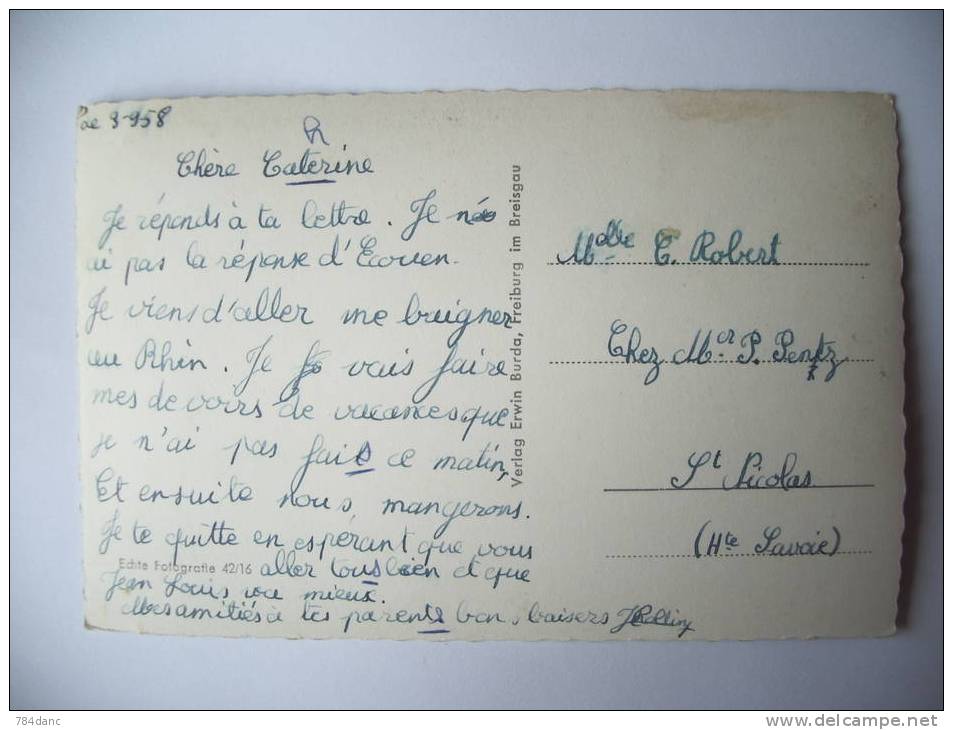 le 3-958
h
Chère Caterine
Je réponds à ta lettre. Je n'
ai pas la réponse d'Ecouen.
Je viens d'aller me baigner
au Rhin. Je vais faire
mes devoirs de vacances que
je n'ai pas fais ce matin,
Et ensuite nous mangerons.
Je te quitte en espérant que vous
aller tous bien et que
Jean Louis va mieux.
Mes amitiés à tes parents bons baisers
Echte Fotografie 42/16
Verlag Erwin Burda, Freiburg im Breisgau
Mdlle C. Robert
Chez Mer P. Pentz
St Nicolas
(Hte Savoie)
784danc
www.delcampe.net